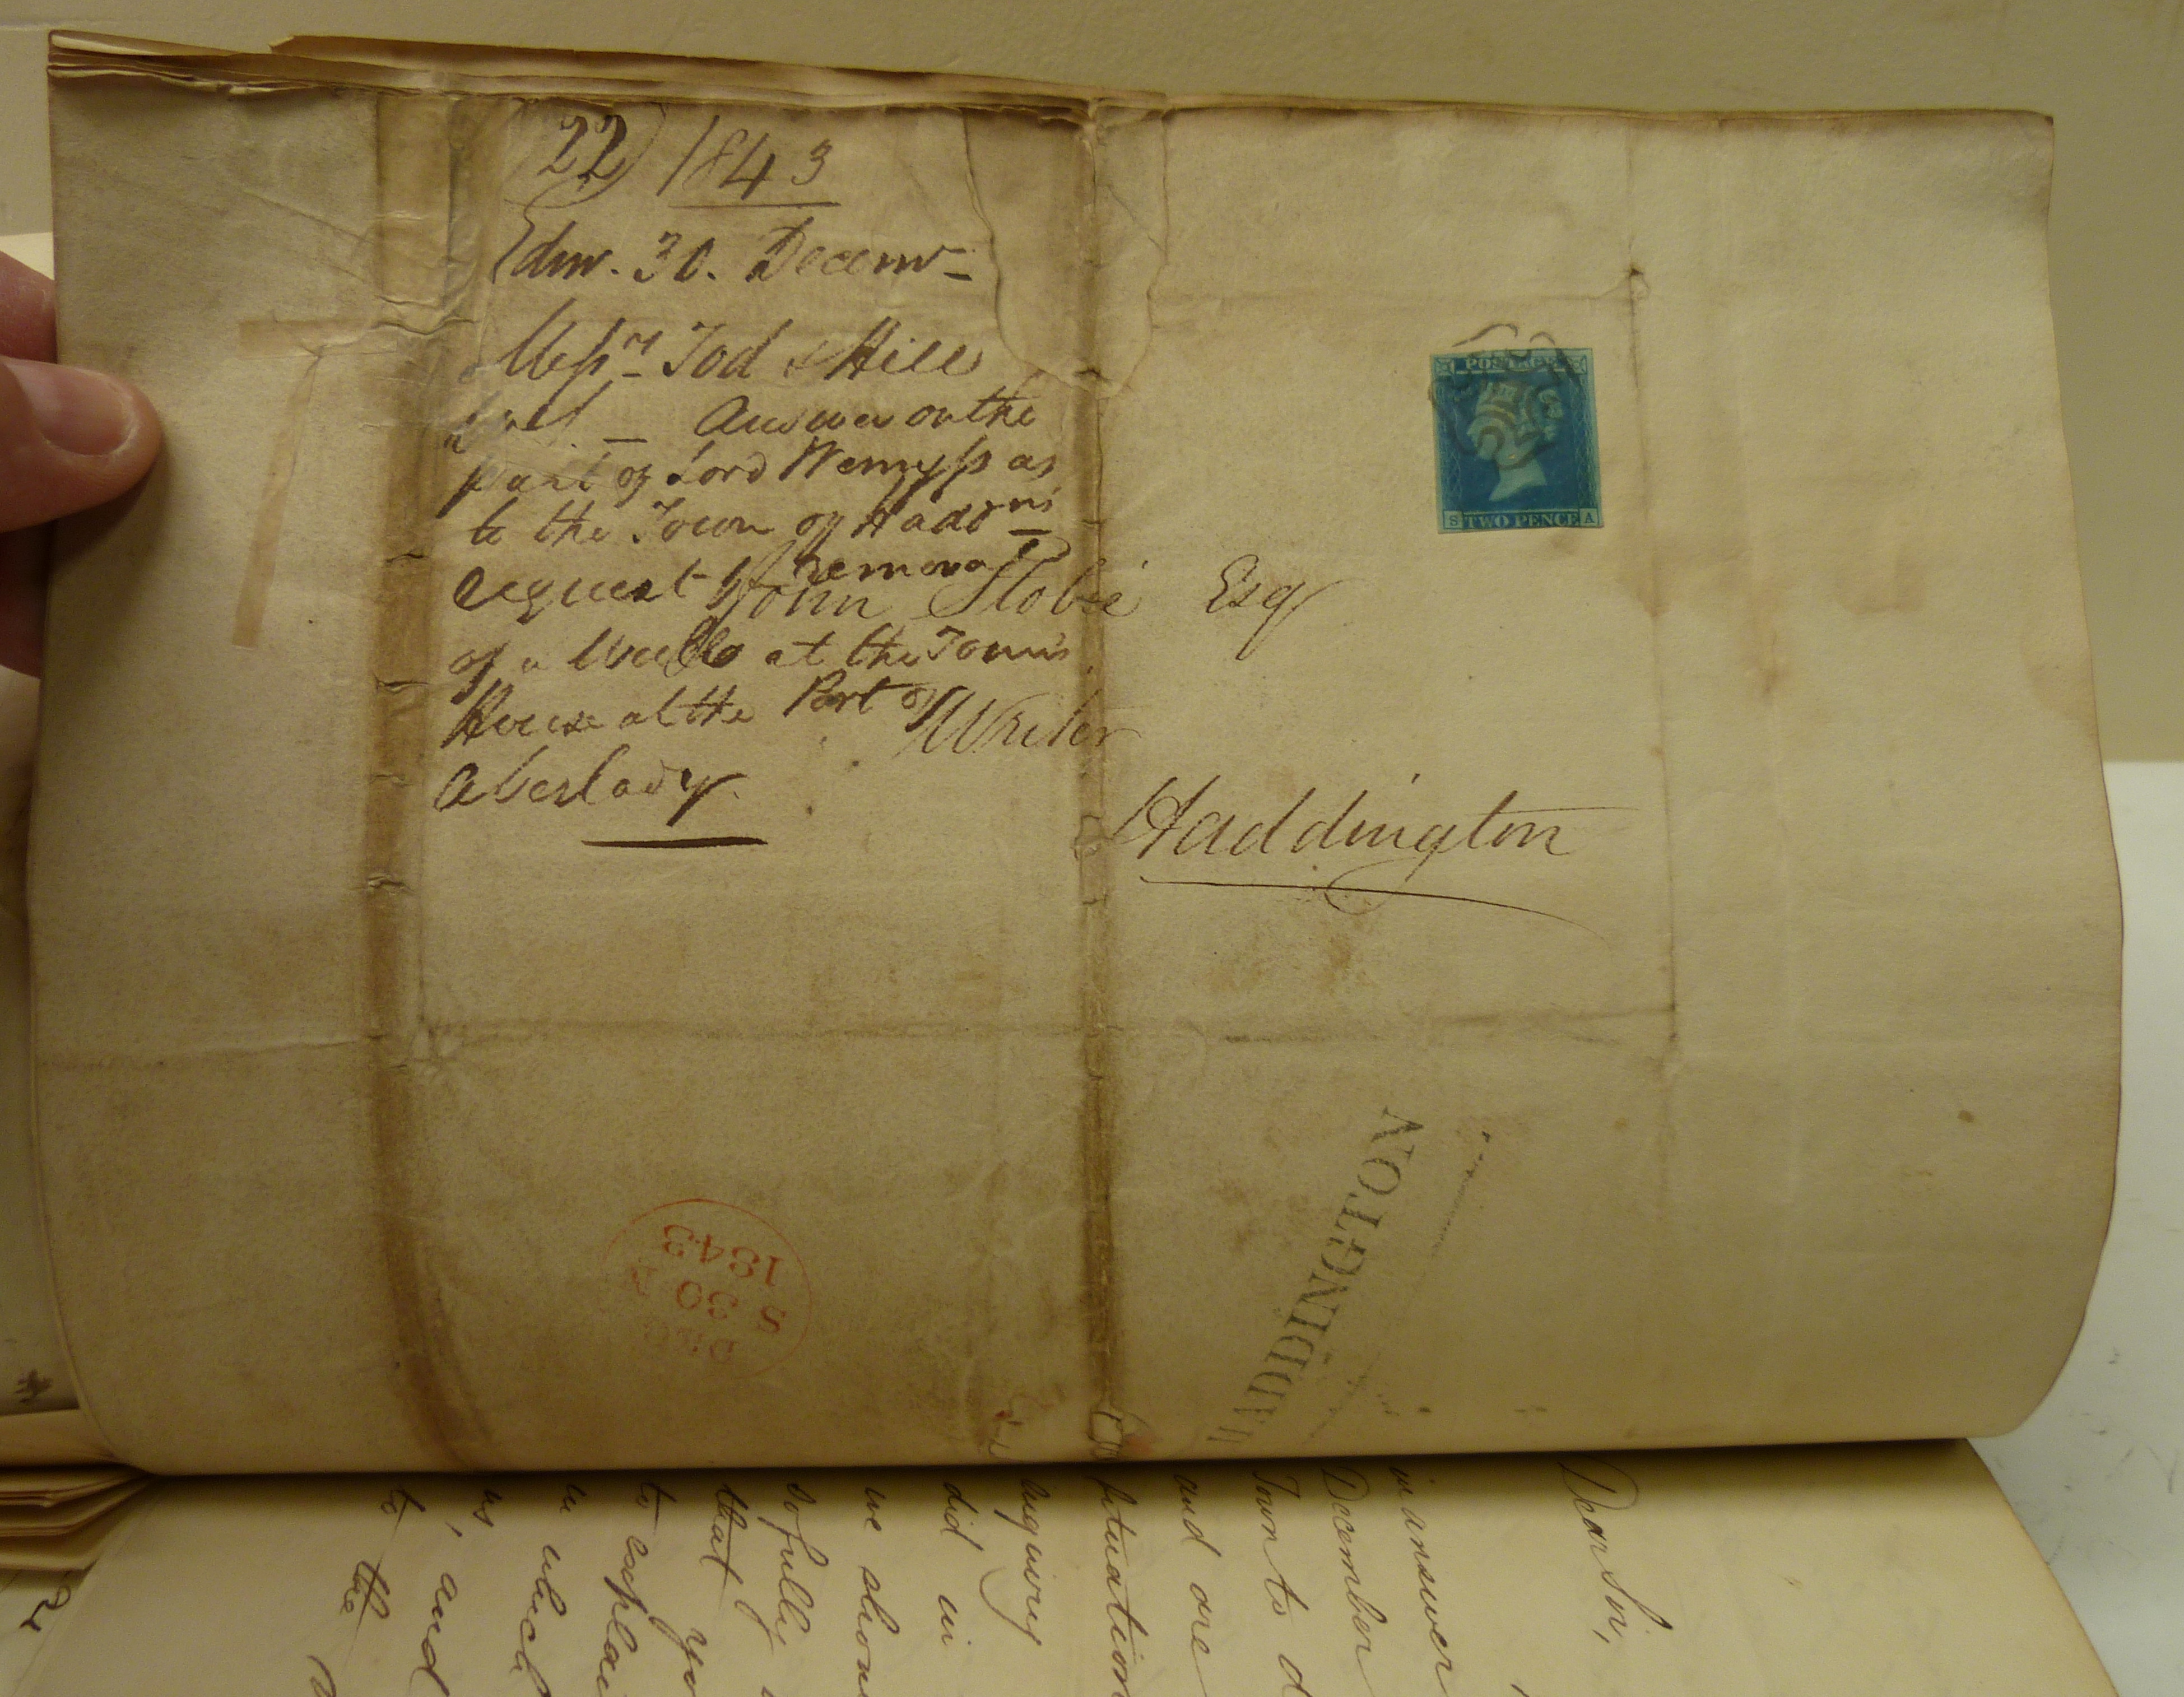 22) 1843
Edinr. 30. Decemr
Messrs Tod & Hill
Answer on the
part of Lord Wemyss as
to the Town of Haddns
request for removal
of a Wreck at the Town's
House at the Port of
Aberlady
John Stobie Esqr
Writer
Haddington
POSTAGE
S TWO PENCE A
HADDINGTON
DEC
S 30
1843
Dear Sir,
in answer
December
Town to d
and are
situation
inquiry
did in
we shou
so fully
that yo
to explai
in which
us, and
to the